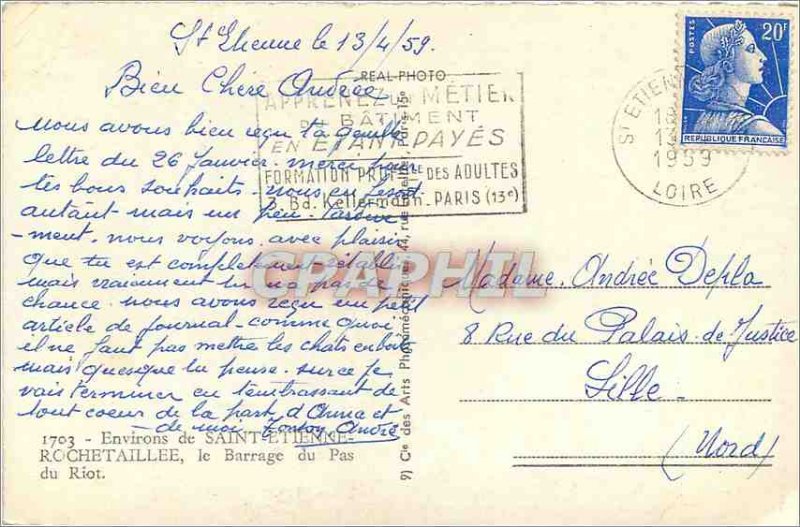 St Etienne le 13/4/59.
Bien Chere Andrée
Nous avons bien reçu ta
lettre du 26 Janvier. merci pour
tes bons souhaits. nous en
autant mais un peu
-ment. nous voyons avec plaisir
que tu est completement rétablie
mais vraiement tu na pas de
chance. nous avons reçu un petit
article de journal - comme quoi
il ne faut pas mettre les chats en boite
mais quesque tu pense. surce je
vais terminer en t'embrassant de
tout coeur de la part d'Anna et
- de moi. Tonton André
REAL-PHOTO
APPRENEZ UN METIER
DU BÂTIMENT
EN ETANT PAYÉS
FORMATION PROFELLE DES ADULTES
Bd. Kellermann_PARIS (13e)
ST ETIENNE
1959
LOIRE
POSTES
20F
REPUBLIQUE FRANÇAISE
Cie des Arts Photomécaniques, 44, rue Letellier, Paris-15e
CPAPHIL
Madame. Andrée Depla
8 Rue du Palais-de Justice
Lille-
(Nord)
1703 - Environs de SAINT-ETIENNE-
ROCHETAILLEE, le Barrage du Pas
du Riot.